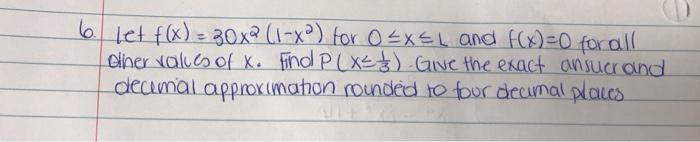 6. Let f(x) = 30x² (1-x²) for 0≤x≤L and f(x)=0 for all
other values of x. Find P(x≤⅓). Give the exact answer and
decimal approximation rounded to four decimal places